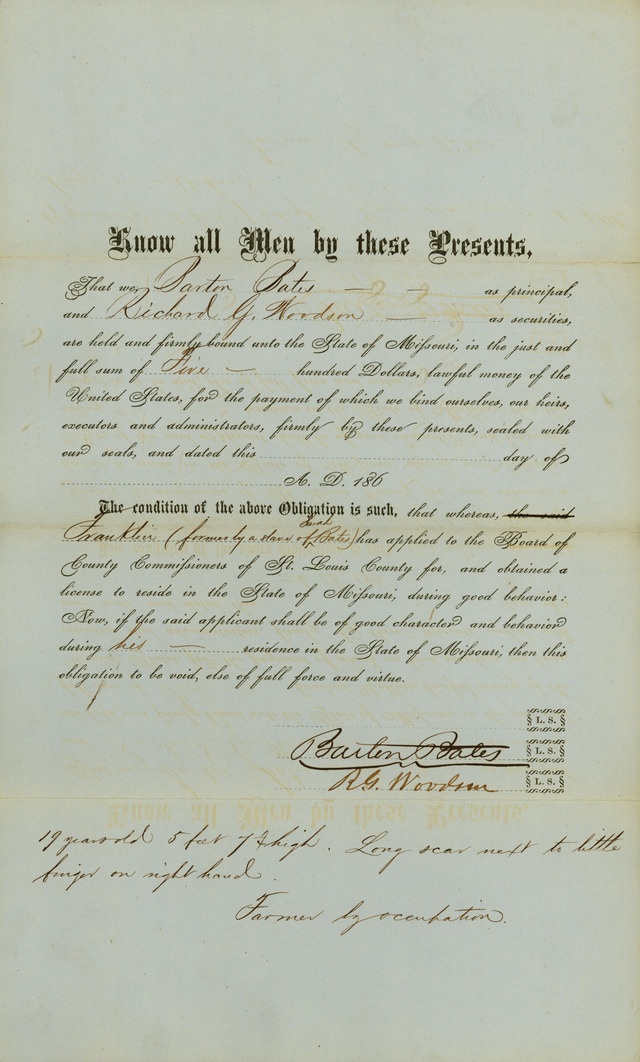 Know all Men by these Presents,
That we, Barton Bates — as principal,
and Richard G. Woodson — as securities,
are held and firmly bound unto the State of Missouri, in the just and
full sum of Five — hundred Dollars, lawful money of the
United States, for the payment of which we bind ourselves, our heirs,
executors and administrators, firmly by these presents, sealed with
our seals, and dated this day of
A. D. 186
The condition of the above Obligation is such, that whereas, the said
Franklin (formerly a slave of Bates) has applied to the Board of
County Commissioners of St. Louis County for, and obtained a
license to reside in the State of Missouri, during good behavior:
Now, if the said applicant shall be of good character and behavior
during his — residence in the State of Missouri, then this
obligation to be void, else of full force and virtue.
L. S.
Barton Bates L. S.
R G. Woodson L. S.
19 years old 5 feet 7 ¾ high. Long scar next to little
finger on right hand.
Farmer by occupation.